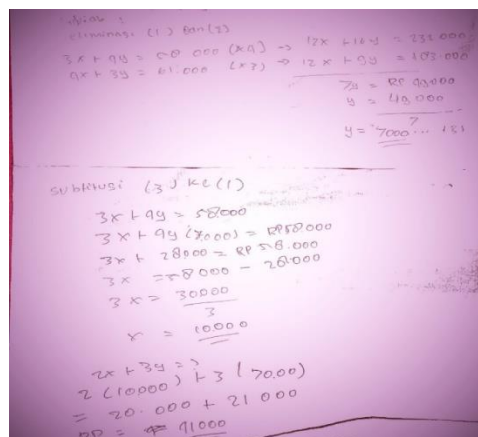 eliminasi (1) dan (2)
3x + 4y = 58 000 (x4) → 12x + 16y = 232.000
4x + 3y = 61.000 (x3) → 12x + 9y = 183.000
7y = RP 49000
y = 49.000
7
y = 7000 ... (3)
Subtitusi (3) ke (1)
3x + 4y = 58.000
3x + 4y (7.000) = RP58000
3x + 28000 = RP 58.000
3x = 58000 - 28000
3x = 30000
3
x = 10.000
2x + 3y = ?
2 (10000) + 3 (70.00)
= 20.000 + 21 000
RP = 41000